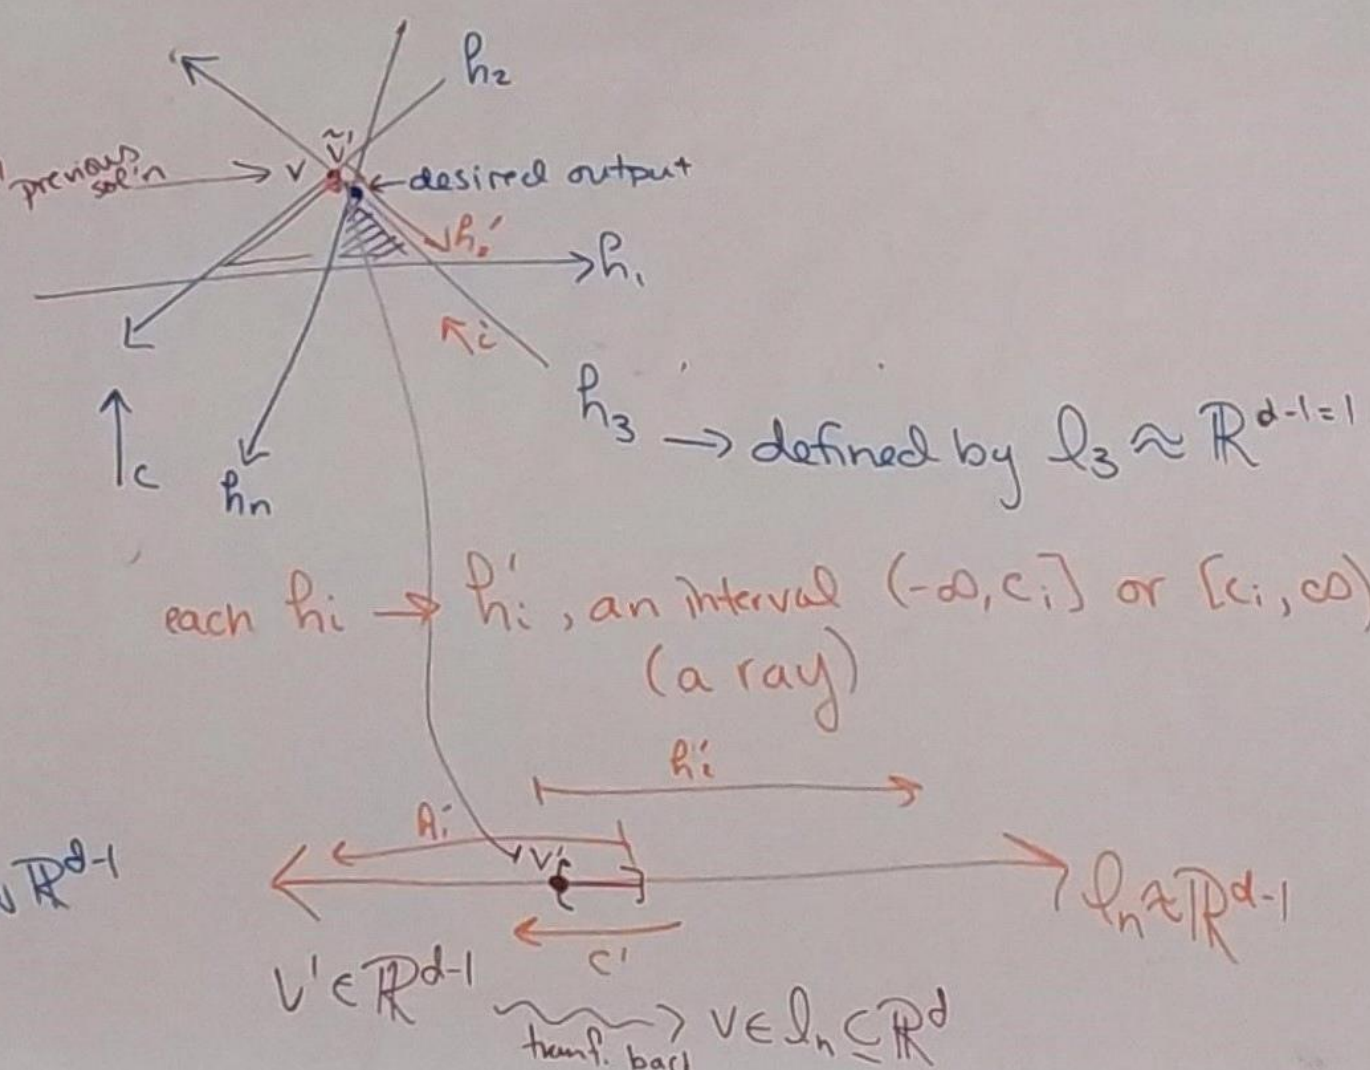 h₂
ṽ'
previous sol'n → v
← desired output
h₁'
→ h₁
i
h₃ → defined by l₃ ≈ ℝ^{d-1=1}
↑c
hₙ
each hᵢ → hᵢ', an interval (-∞, cᵢ] or [cᵢ, ∞)
(a ray)
hᵢ'
Aᵢ
v'
ℝ^{d-1}
lₙ ≈ ℝ^{d-1}
c'
v' ∈ ℝ^{d-1} ⇝ v ∈ lₙ ⊆ ℝ^d
transf. back